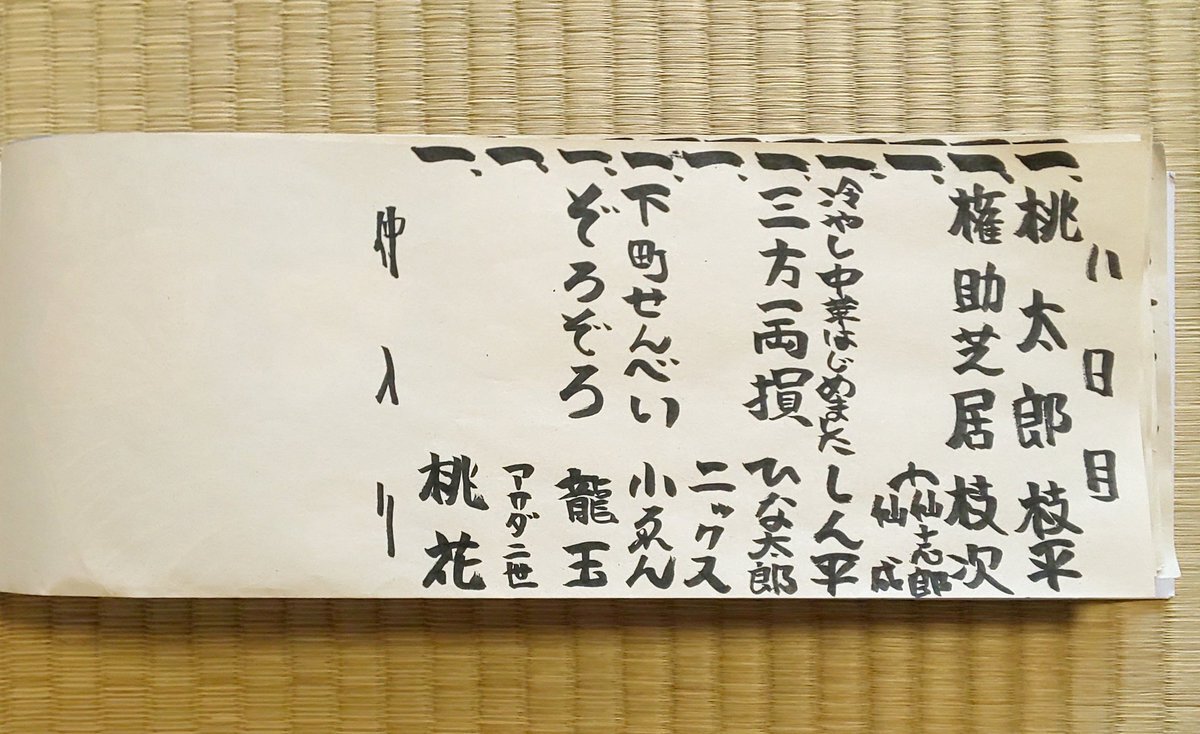 八日目
一、桃太郎 枝平
一、権助芝居 枝次
一、 小仙志郎 仙成
一、冷やし中華はじめました しん平
一、三方一両損 ひな太郎
一、 ニックス
一、下町せんべい 小ゑん
一、ぞろぞろ 龍玉
一、 アサダ二世
一、 桃花
仲入り